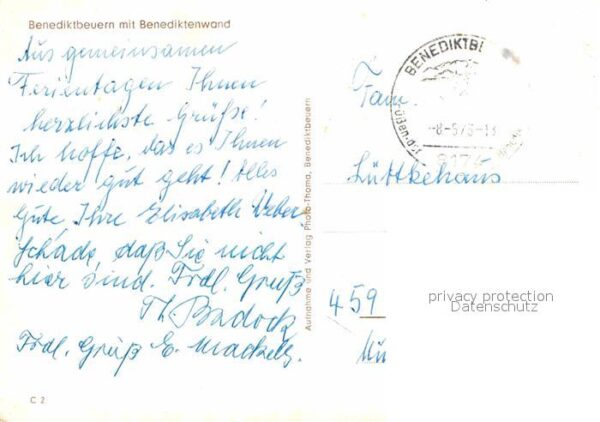 Benediktbeuern mit Benediktenwand
Aus gemeinsamen
Ferientagen Ihnen
herzlichste Grüße!
Ich hoffe, das es Ihnen
wieder gut geht! Alles
Gute, Ihre Elisabeth Weber
Schade, daß Sie nicht
hier sind. Frdl. Gruß
Th. Badock
Frdl. Gruß E.
C 2
Aufnahme und Verlag Photo-Thoma, Benediktbeuern
BENEDIKTBE
8174
Fam.
Lüttkehaus
459
privacy protection
Datenschutz
Mü